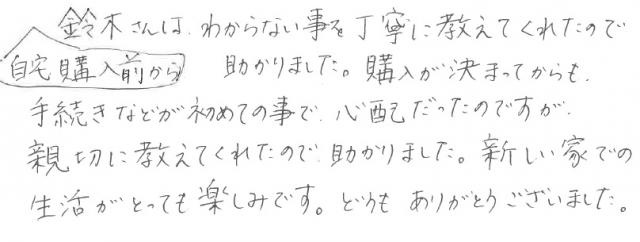 鈴木さんは、わからない事を丁寧に教えてくれたので
自宅購入前から 助かりました。購入が決まってからも、
手続きなどが初めての事で、心配だったのですが、
親切に教えてくれたので、助かりました。新しい家での
生活がとっても楽しみです。どうも ありがとうございました。